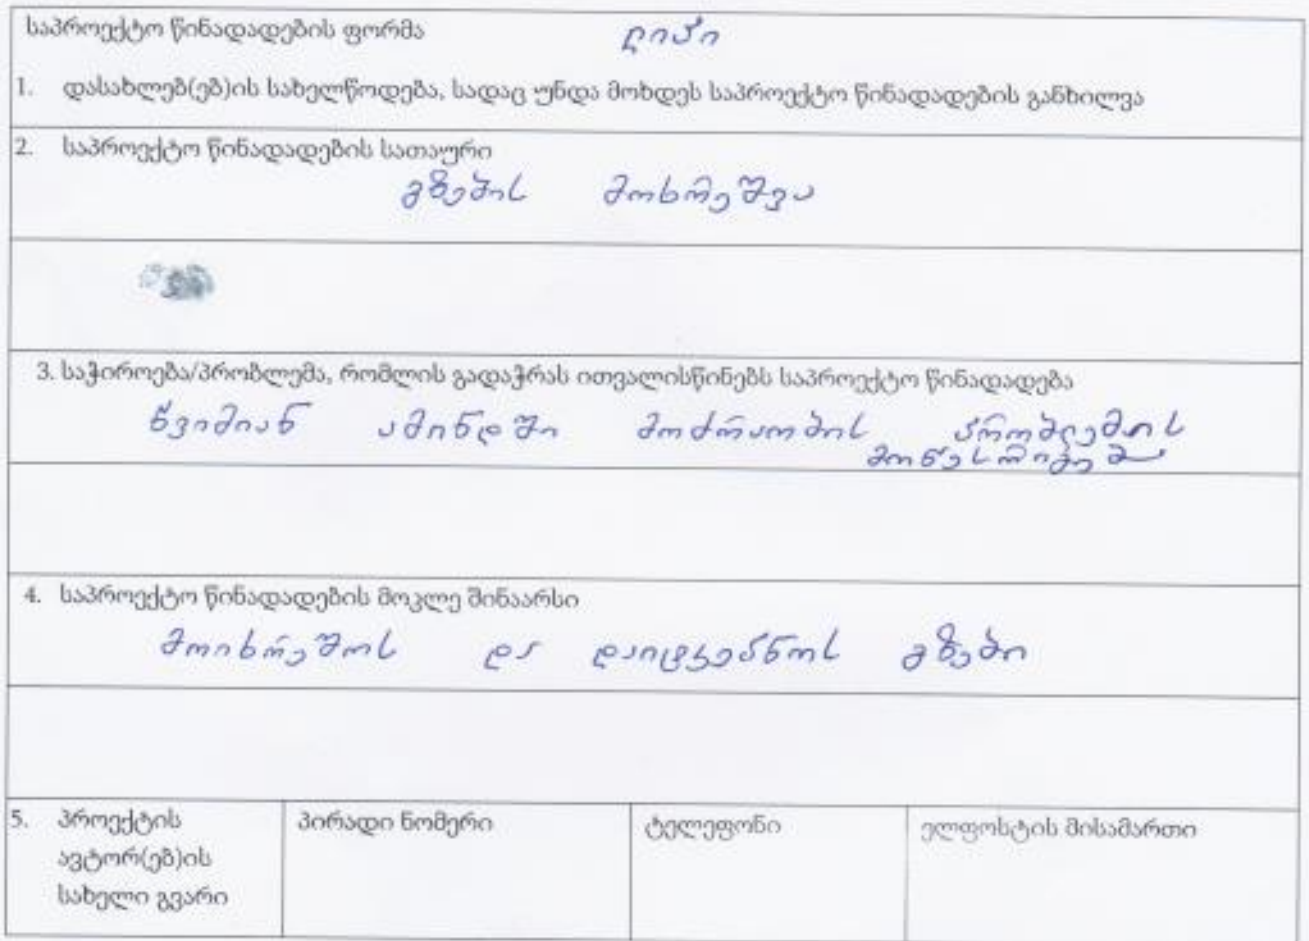 საპროექტო წინადადების ფორმა ლიპი
1. დასახლებ(ებ)ის სახელწოდება, სადაც უნდა მოხდეს საპროექტო წინადადების განხილვა
2. საპროექტო წინადადების სათაური
გზების მოხრეშვა
3. საჭიროება/პრობლემა, რომლის გადაჭრას ითვალისწინებს საპროექტო წინადადება
წვიმიან ამინდში მოძრაობის პრობლემის
მოწესრიგება
4. საპროექტო წინადადების მოკლე შინაარსი
მოიხრეშოს და დაიტკეპნოს გზები
5. პროექტის ავტორ(ებ)ის სახელი გვარი
პირადი ნომერი
ტელეფონი
ელფოსტის მისამართი